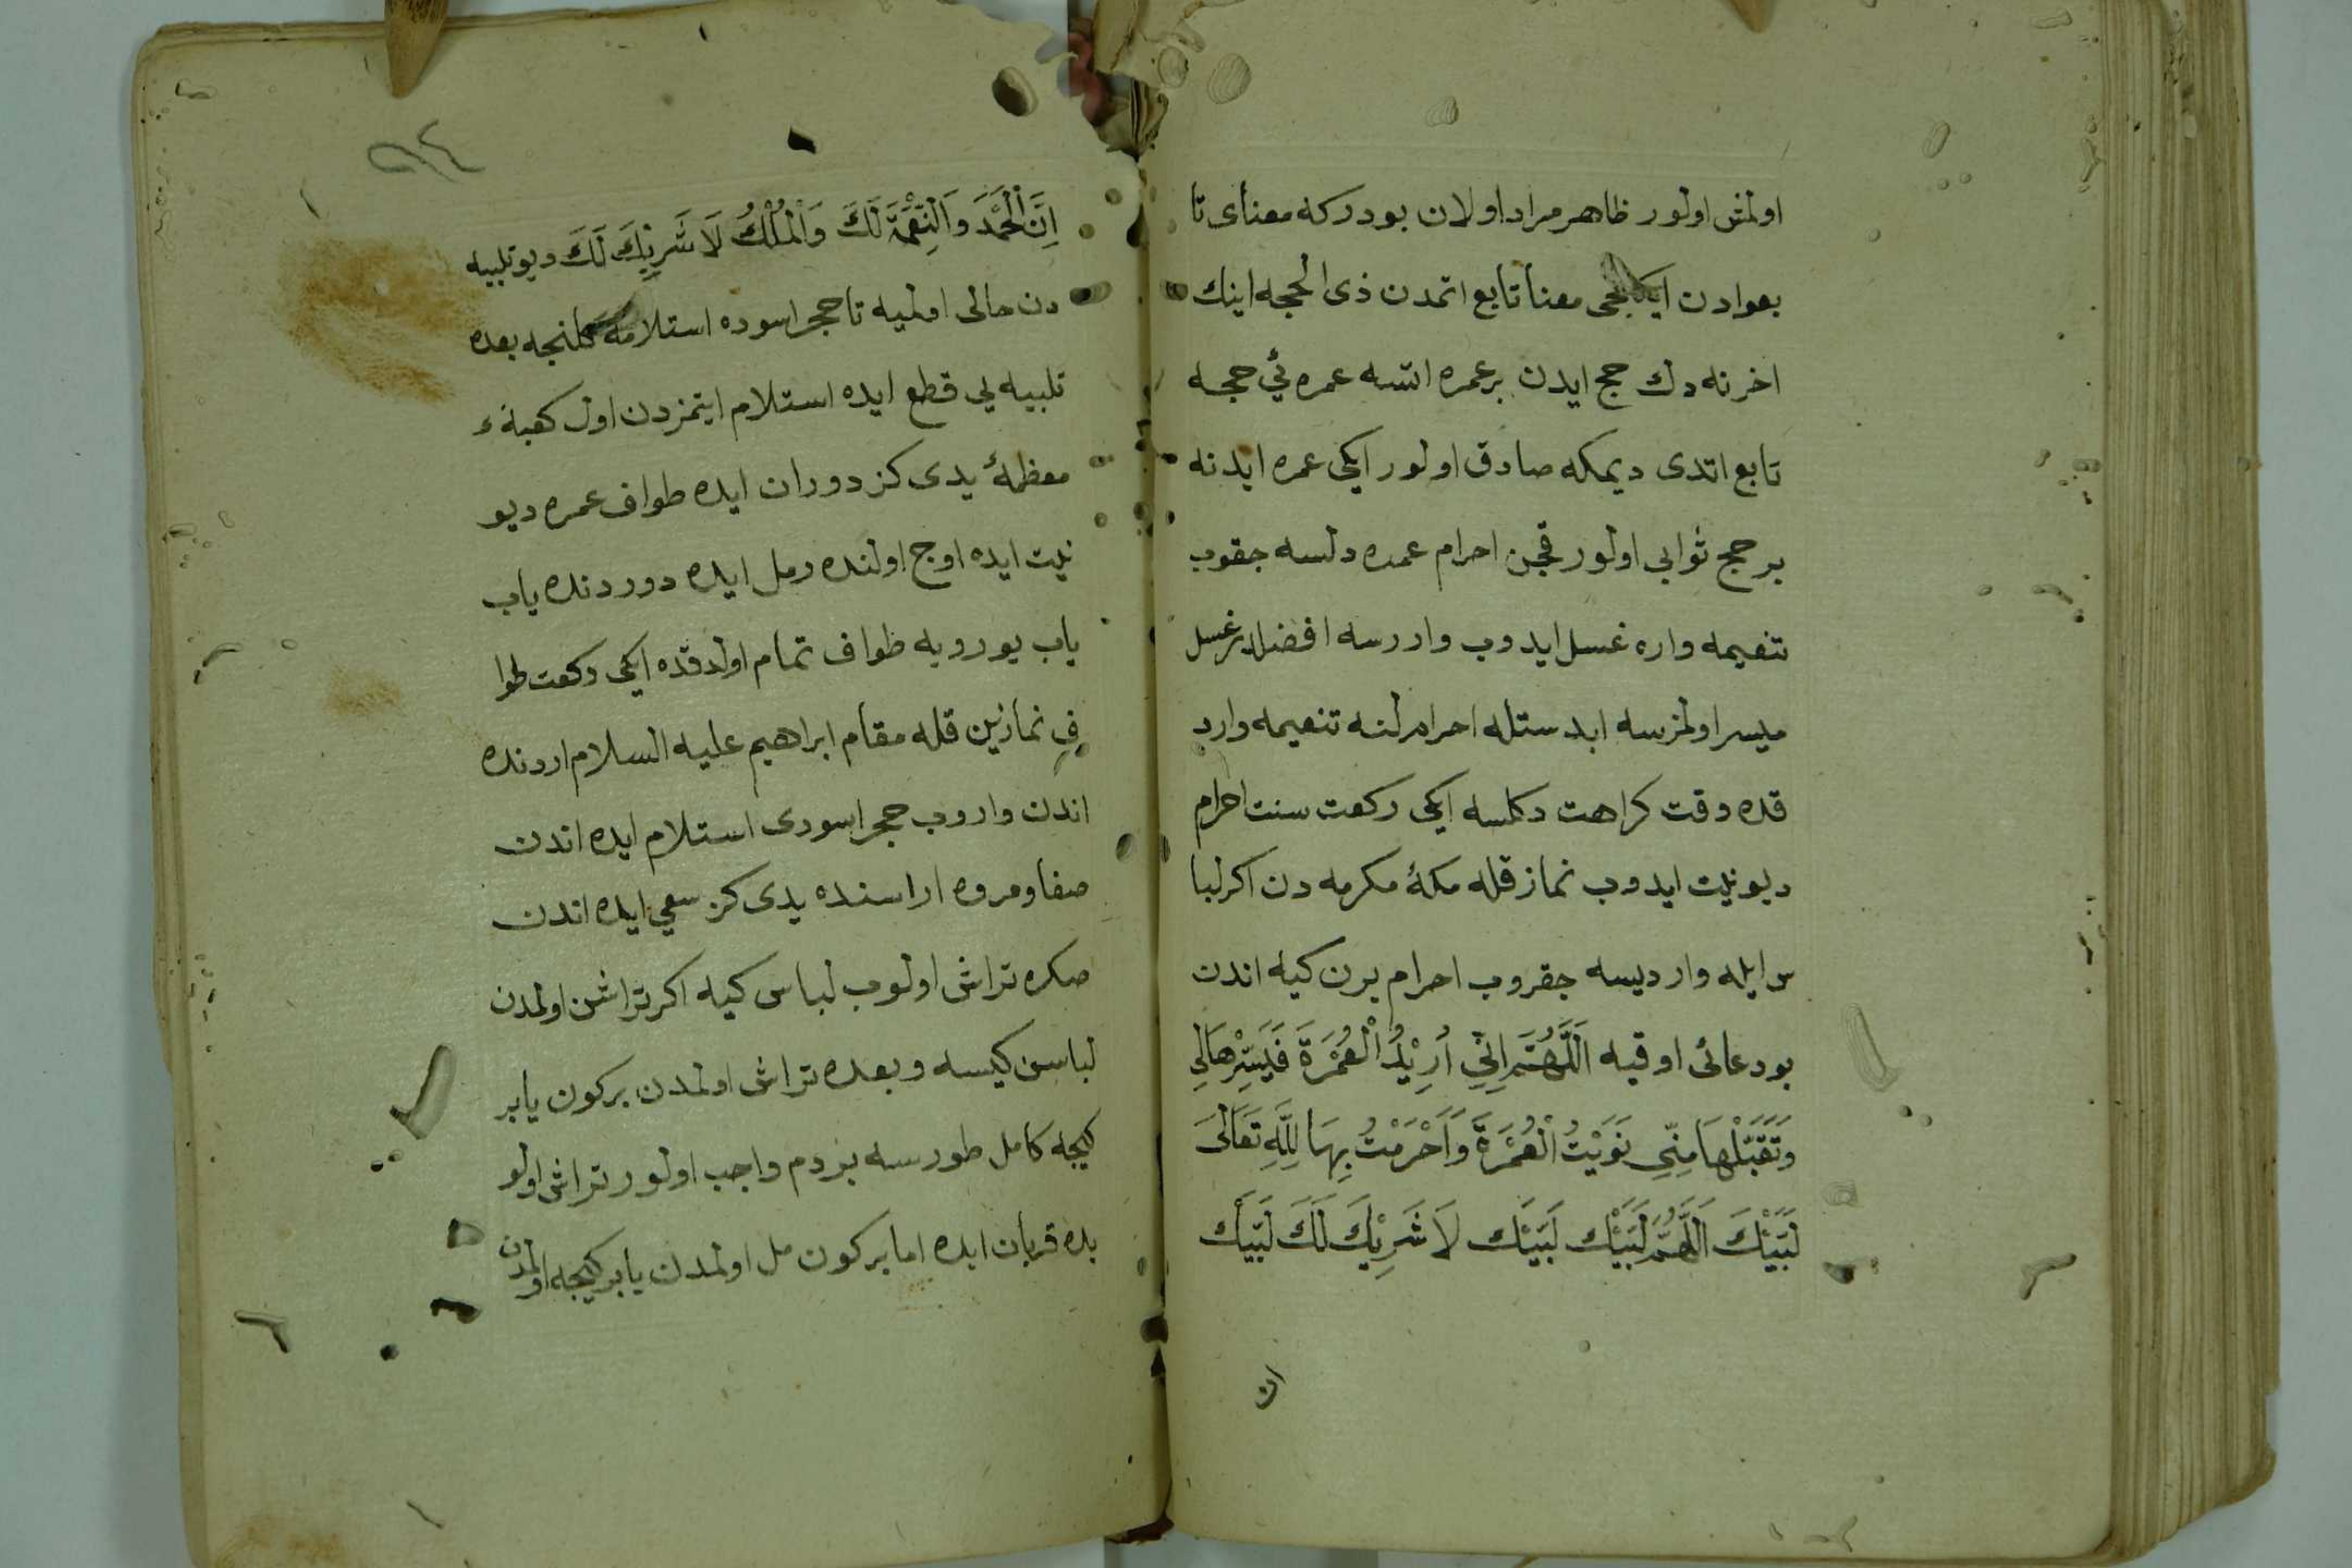 اولمش اولور ظاهر مراد اولان بودركه معنأى تا
بعوادن ايكنجى معنأ تأبع اتمدن ذى الحجه اينك
اخرنه دك حج ايدن برعمره اتسه عمره ئي حجه
تابع اتدى ديمكه صادق اولور ايكى عمره ايدنه
بر حج ثوابى اولور قچن احرام عمره دلسه جقوب
تنعيمه واره غسل ايدوب واررسه افضلدر غسل
ميسر اولمزسه ابدستله احرامرلنه تنعيمه وارد
قده وقت كراهت دكلسه ايكى ركعت سنت احرام
ديو نيت ايدوب نماز قله مكهٔ مكرمه دن اكر لبا
س ايله وارديسه جقروب احرام برن كيه اندن
بو دعائى اوقيه اَللّٰهُمَّ اِنّٖي اُرِيْدُ الْعُمْرَةَ فَيَسِّرْهَالِي
وَتَقَبَّلْهَا مِنِّي نَوَيْتُ الْعُمْرَةَ وَاَحْرَمْتُ بِهَا لِلّٰهِ تَعَالَى
لَبَّيْكَ اَللّٰهُمَّ لَبَّيْك لَبَّيْك لَا شَرِيْكَ لَكَ لَبَّيْك
ان
٩٤
اِنَّ الْحَمْدَ وَالنِّعْمَةَ لَكَ وَالْمُلْكُ لَا شَرِيكَ لَكَ ديو تلبيه
دن حالى اولميه تا حجر اسوده استلامه كلنجه بعده
تلبيه يي قطع ايده استلام ايتمزدن اول كعبهٔ
معظمهٔ يدى كز دوران ايده طواف عمره ديو
نيت ايده اوج اولنده رمل ايده دوردنده ياب
ياب يورويه طواف تمام اولدقده ايكى ركعت طوا
ف نمازين قله مقأم ابراهيم عليه السلام اردنده
اندن واروب حجر اسودى استلام ايده اندن
صفا ومروه اراسنده يدى كز سعي ايده اندن
صكره تراش اولوب لباس كيه اكر تراشن اولمدن
لباسن كيسه وبعده تراش اولمدن بركون يابر
كيجه كامل طورسه بر دم واجب اولور تراش اولو
بده قربان ايده اما بركون مل اولمدن يابر كيجه اولمدن